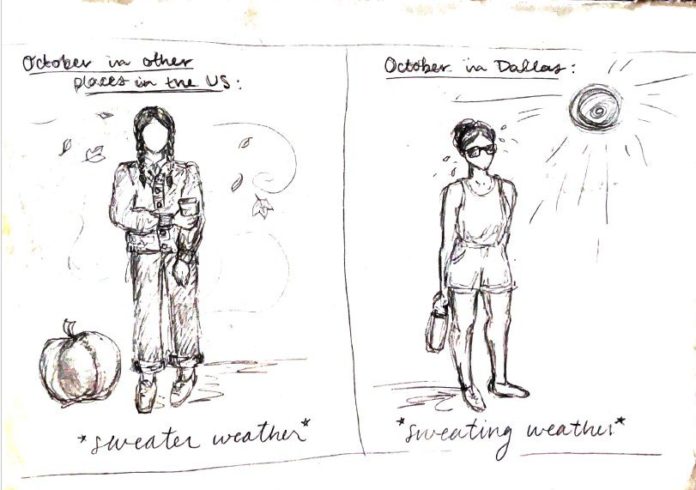 October in other
places in the US:
*sweater weather*
October in Dallas:
*sweating weather*